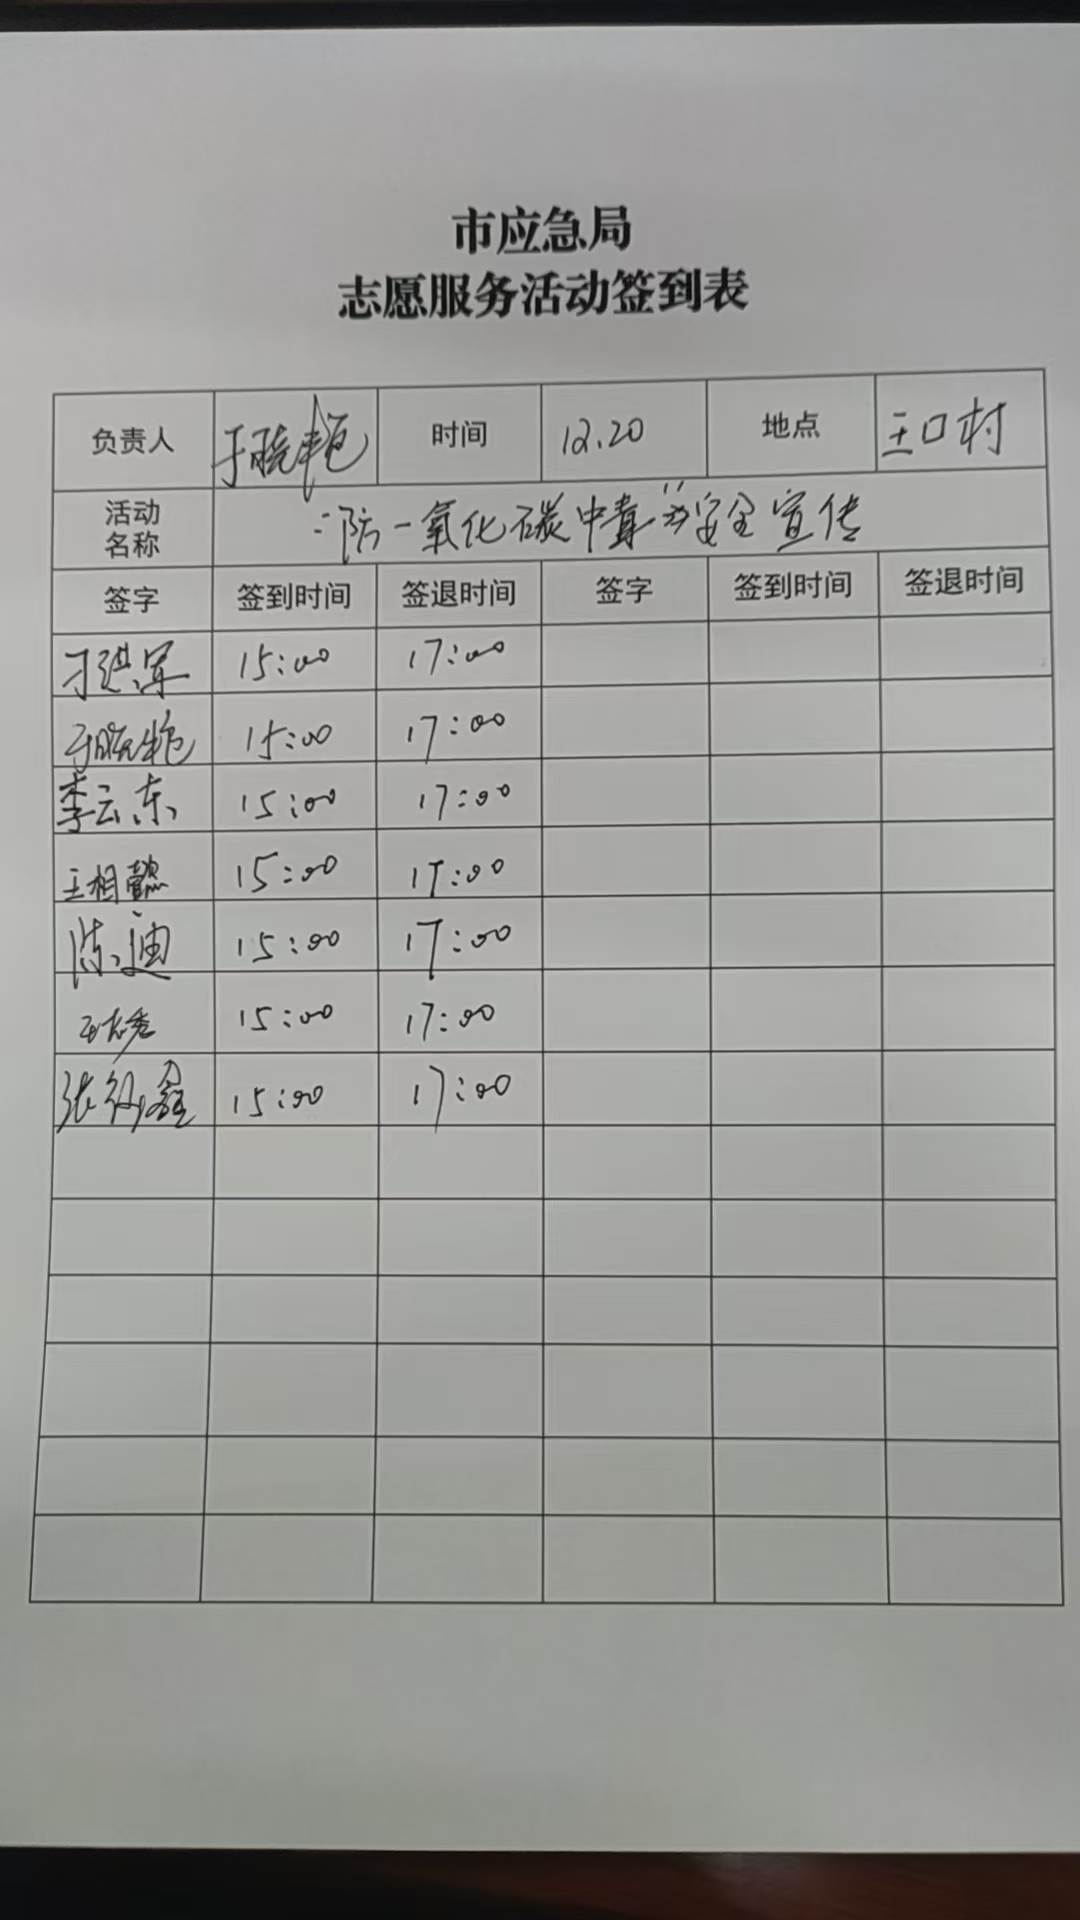 市应急局
志愿服务活动签到表
负责人 于晓艳 时间 12.20 地点 王口村
活动名称 "防一氧化碳中毒"安全宣传
签字 签到时间 签退时间 签字 签到时间 签退时间
15:00 17:00
于晓艳 15:00 17:00
李云东 15:00 17:00
王相懿 15:00 17:00
陈迪 15:00 17:00
15:00 17:00
张 鑫 15:00 17:00